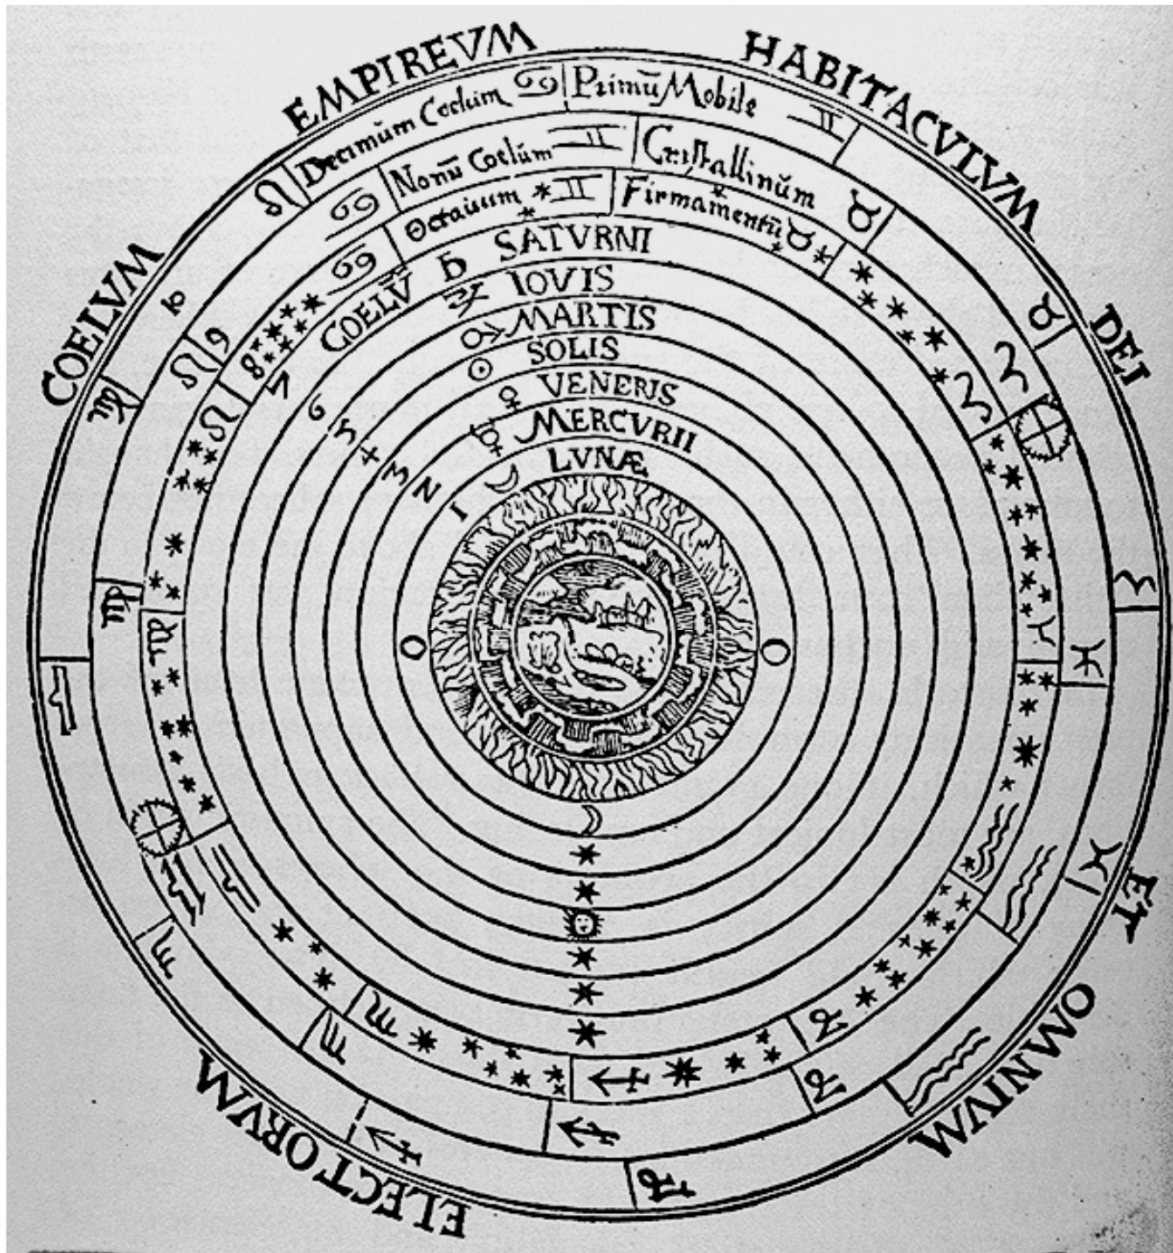 COELVM EMPIREVM HABITACVLVM DEI ET OMNIVM ELECTORVM
Decimum Coelum Primū Mobile
Nonū Coelūm Cristallinūm
Octauum Firmamentū
COELV̄ SATVRNI
IOVIS
MARTIS
SOLIS
VENERIS
MERCVRII
LVNÆ